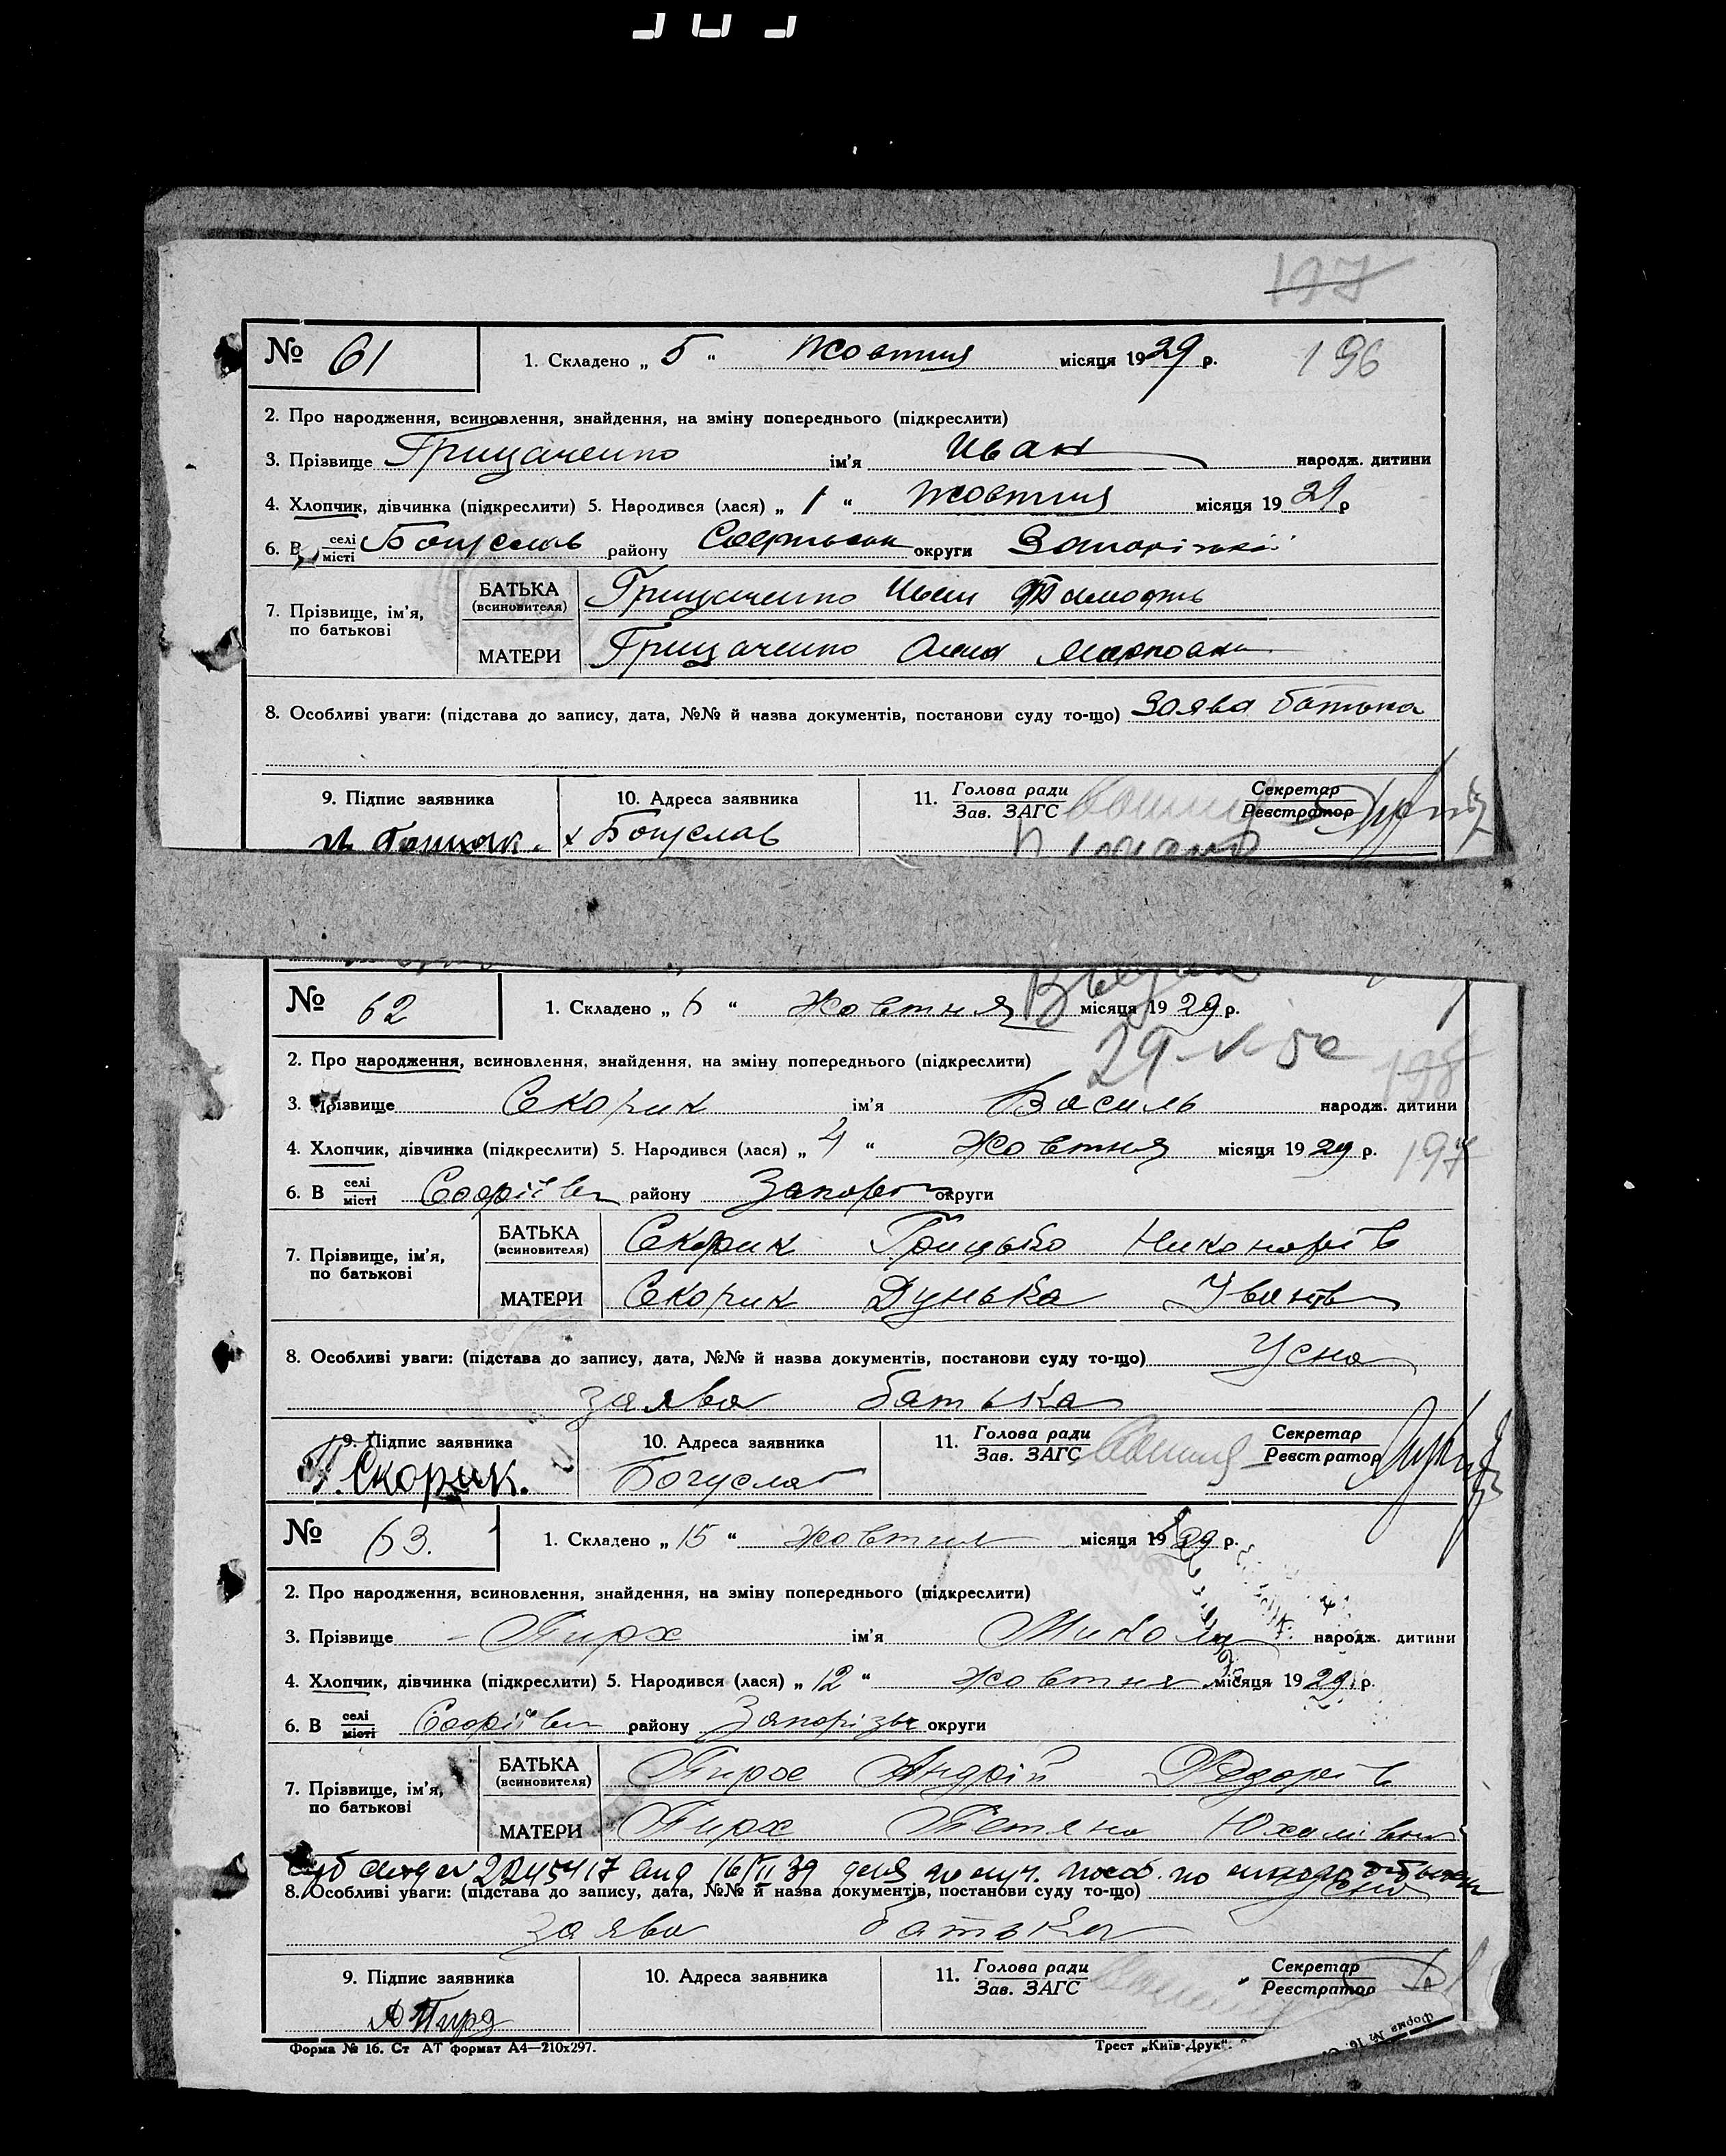 197
№ 61 1. Складено „ 5 “ Жовтня місяця 1929 р. 196
2. Про народження, всиновлення, знайдення, на зміну попереднього (підкреслити)
3. Прізвище Грищаченко ім'я Иван народж. дитини
4. Хлопчик, дівчинка (підкреслити) 5. Народився (лася) „ 1 “ Жовтня місяця 1929 р
6. В селі/місті Богуслав району Софиевск округи Запорізькій
7. Прізвище, ім'я, по батькові
БАТЬКА (всиновителя) Грищаченко Иван
МАТЕРИ Грищаченко Анна Марковна
8. Особливі уваги: (підстава до запису, дата, №№ й назва документів, постанови суду то-що) Заява батька
9. Підпис заявника 10. Адреса заявника 11. Голова ради/Зав. ЗАГС Секретар/Реєстратор
х Богуслав
№ 62 1. Складено „ 6 “ Жовтня місяця 1929 р.
29-V-50
2. Про народження, всиновлення, знайдення, на зміну попереднього (підкреслити)
198
3. Прізвище Скорик ім'я Василь народж. дитини
4. Хлопчик, дівчинка (підкреслити) 5. Народився (лася) „ 4 “ Жовтня місяця 1929 р. 197
6. В селі/місті Софіївк району Запоріз округи
7. Прізвище, ім'я, по батькові
БАТЬКА (всиновителя) Скорик Грицько Никонорів
МАТЕРИ Скорик Дунька Іванів
8. Особливі уваги: (підстава до запису, дата, №№ й назва документів, постанови суду то-що) Усна
заява батька
9. Підпис заявника 10. Адреса заявника 11. Голова ради/Зав. ЗАГС Секретар/Реєстратор
Г. Скорик. Богуслав
№ 63. 1. Складено „ 15 “ жовтня місяця 1929 р.
2. Про народження, всиновлення, знайдення, на зміну попереднього (підкреслити)
3. Прізвище Пирх ім'я Микола народж. дитини
4. Хлопчик, дівчинка (підкреслити) 5. Народився (лася) „ 12 “ жовтня місяця 1929 р.
6. В селі/місті Софіївк району Запорізьк округи
7. Прізвище, ім'я, по батькові
БАТЬКА (всиновителя) Пирх Андрій Федорів
МАТЕРИ Пирх Тетяна Юхимівна
8. Особливі уваги: (підстава до запису, дата, №№ й назва документів, постанови суду то-що) Усна
заява батька
9. Підпис заявника 10. Адреса заявника 11. Голова ради/Зав. ЗАГС Секретар/Реєстратор
Форма № 16. Ст АТ формат А4—210х297. Трест „Київ-Друк“.
Форма № 16.